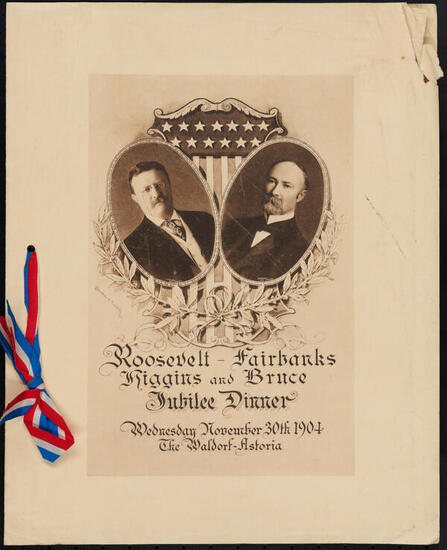 Roosevelt - Fairbanks
Higgins and Bruce
Jubilee Dinner
Wednesday November 30th 1904
The Waldorf-Astoria